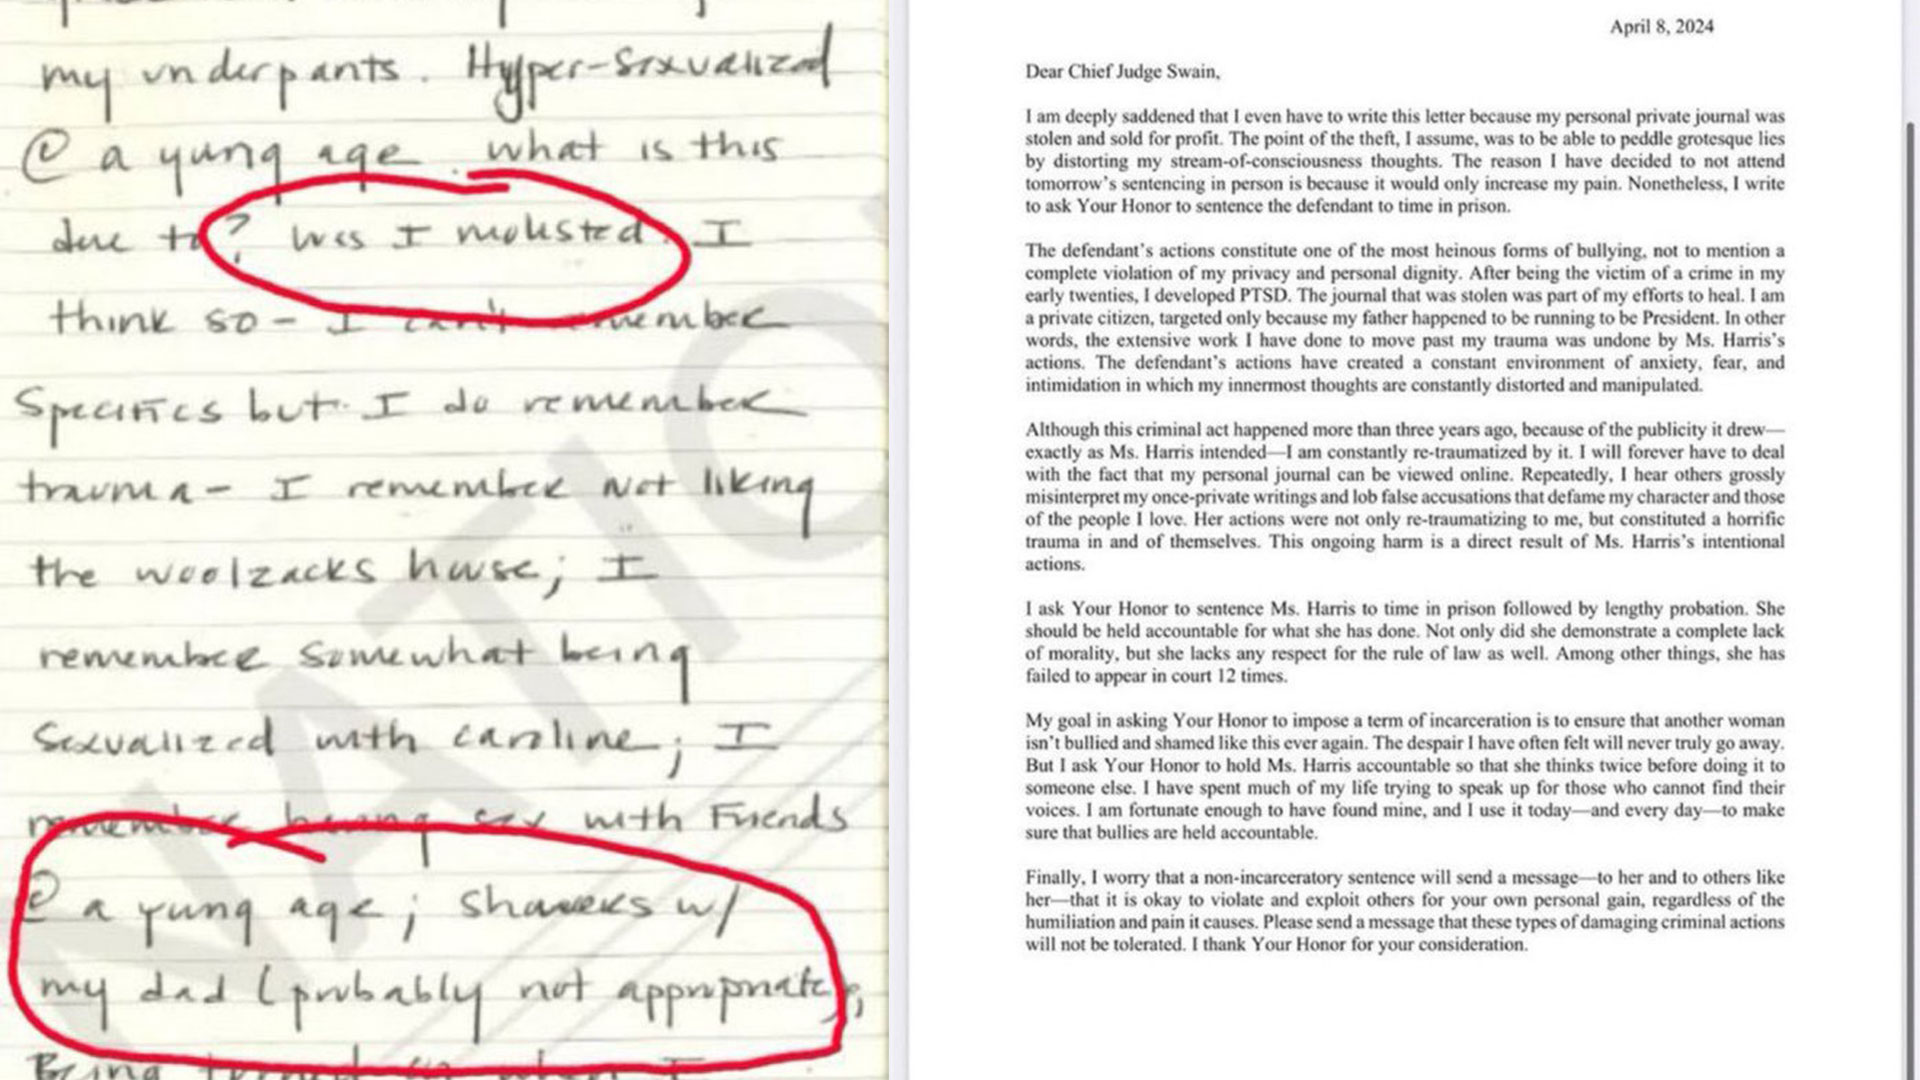 my underpants. Hyper-sexualized
@ a yung age. what is this
due to? Was I molested. I
think so - I can't remember
Specifics but I do remember
trauma - I remember not liking
the woolzacks house; I
remember somewhat being
sexualized with caroline; I
remember having sex with Friends
@ a yung age; showers w/
my dad (probably not appropriate),
Being turned on when I
NATIO
April 8, 2024
Dear Chief Judge Swain,
I am deeply saddened that I even have to write this letter because my personal private journal was
stolen and sold for profit. The point of the theft, I assume, was to be able to peddle grotesque lies
by distorting my stream-of-consciousness thoughts. The reason I have decided to not attend
tomorrow's sentencing in person is because it would only increase my pain. Nonetheless, I write
to ask Your Honor to sentence the defendant to time in prison.
The defendant's actions constitute one of the most heinous forms of bullying, not to mention a
complete violation of my privacy and personal dignity. After being the victim of a crime in my
early twenties, I developed PTSD. The journal that was stolen was part of my efforts to heal. I am
a private citizen, targeted only because my father happened to be running to be President. In other
words, the extensive work I have done to move past my trauma was undone by Ms. Harris's
actions. The defendant's actions have created a constant environment of anxiety, fear, and
intimidation in which my innermost thoughts are constantly distorted and manipulated.
Although this criminal act happened more than three years ago, because of the publicity it drew—
exactly as Ms. Harris intended—I am constantly re-traumatized by it. I will forever have to deal
with the fact that my personal journal can be viewed online. Repeatedly, I hear others grossly
misinterpret my once-private writings and lob false accusations that defame my character and those
of the people I love. Her actions were not only re-traumatizing to me, but constituted a horrific
trauma in and of themselves. This ongoing harm is a direct result of Ms. Harris's intentional
actions.
I ask Your Honor to sentence Ms. Harris to time in prison followed by lengthy probation. She
should be held accountable for what she has done. Not only did she demonstrate a complete lack
of morality, but she lacks any respect for the rule of law as well. Among other things, she has
failed to appear in court 12 times.
My goal in asking Your Honor to impose a term of incarceration is to ensure that another woman
isn't bullied and shamed like this ever again. The despair I have often felt will never truly go away.
But I ask Your Honor to hold Ms. Harris accountable so that she thinks twice before doing it to
someone else. I have spent much of my life trying to speak up for those who cannot find their
voices. I am fortunate enough to have found mine, and I use it today—and every day—to make
sure that bullies are held accountable.
Finally, I worry that a non-incarceratory sentence will send a message—to her and to others like
her—that it is okay to violate and exploit others for your own personal gain, regardless of the
humiliation and pain it causes. Please send a message that these types of damaging criminal actions
will not be tolerated. I thank Your Honor for your consideration.